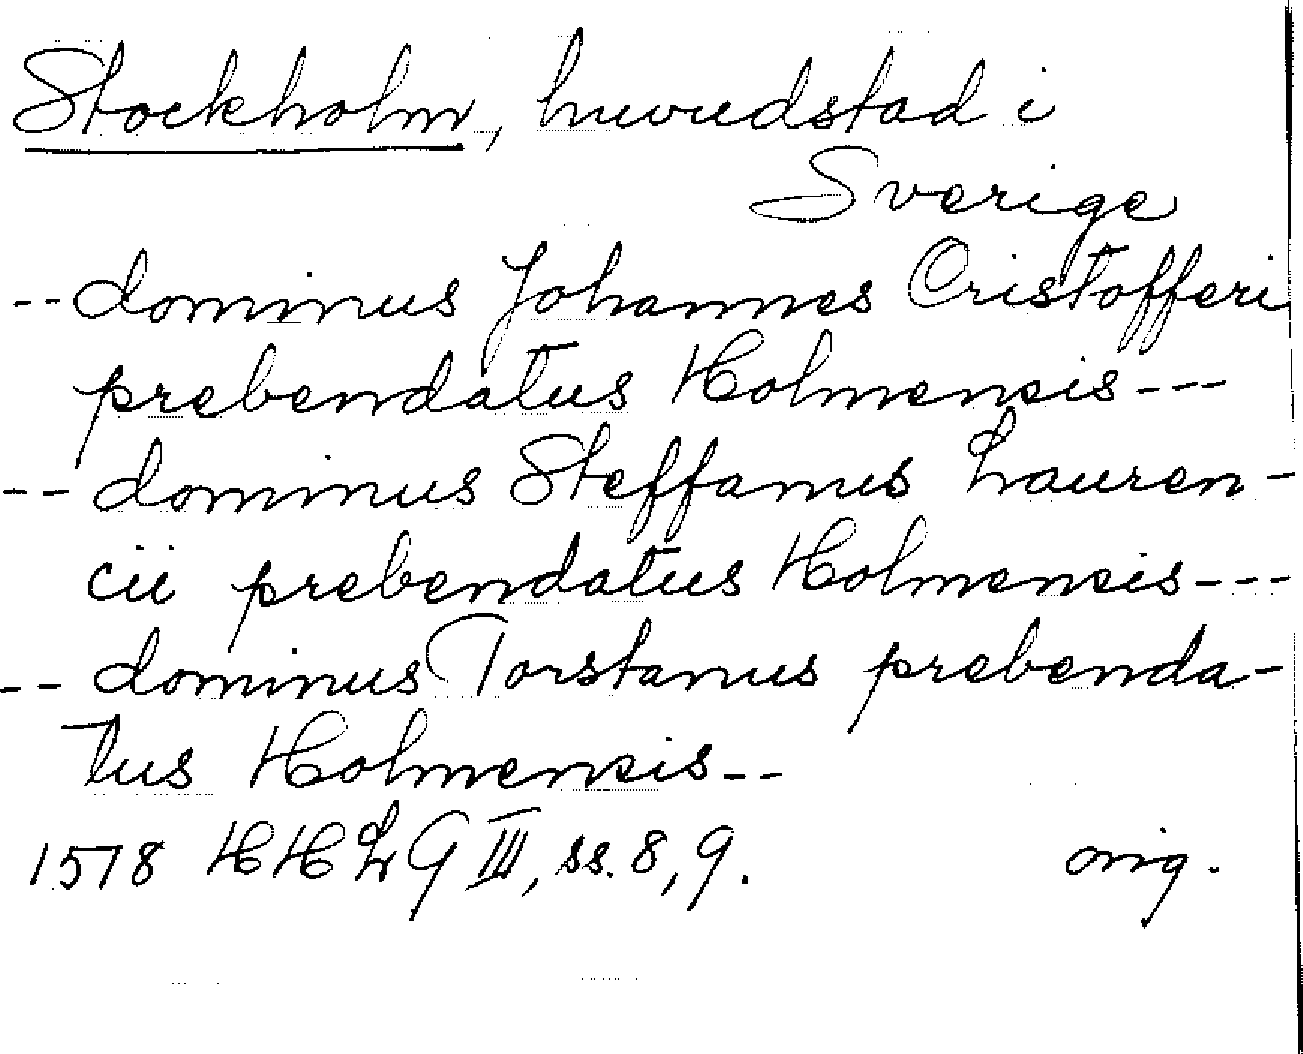 Stockholm, huvudstad i
Sverige
-- dominus Johannes Cristofferi
prebendatus Holmensis---
-- dominus Steffanus Lauren-
cii prebendatus Holmensis---
-- dominus Torstanus prebenda-
tus Holmensis--
1518 HHLG III, ss. 8, 9. orig.